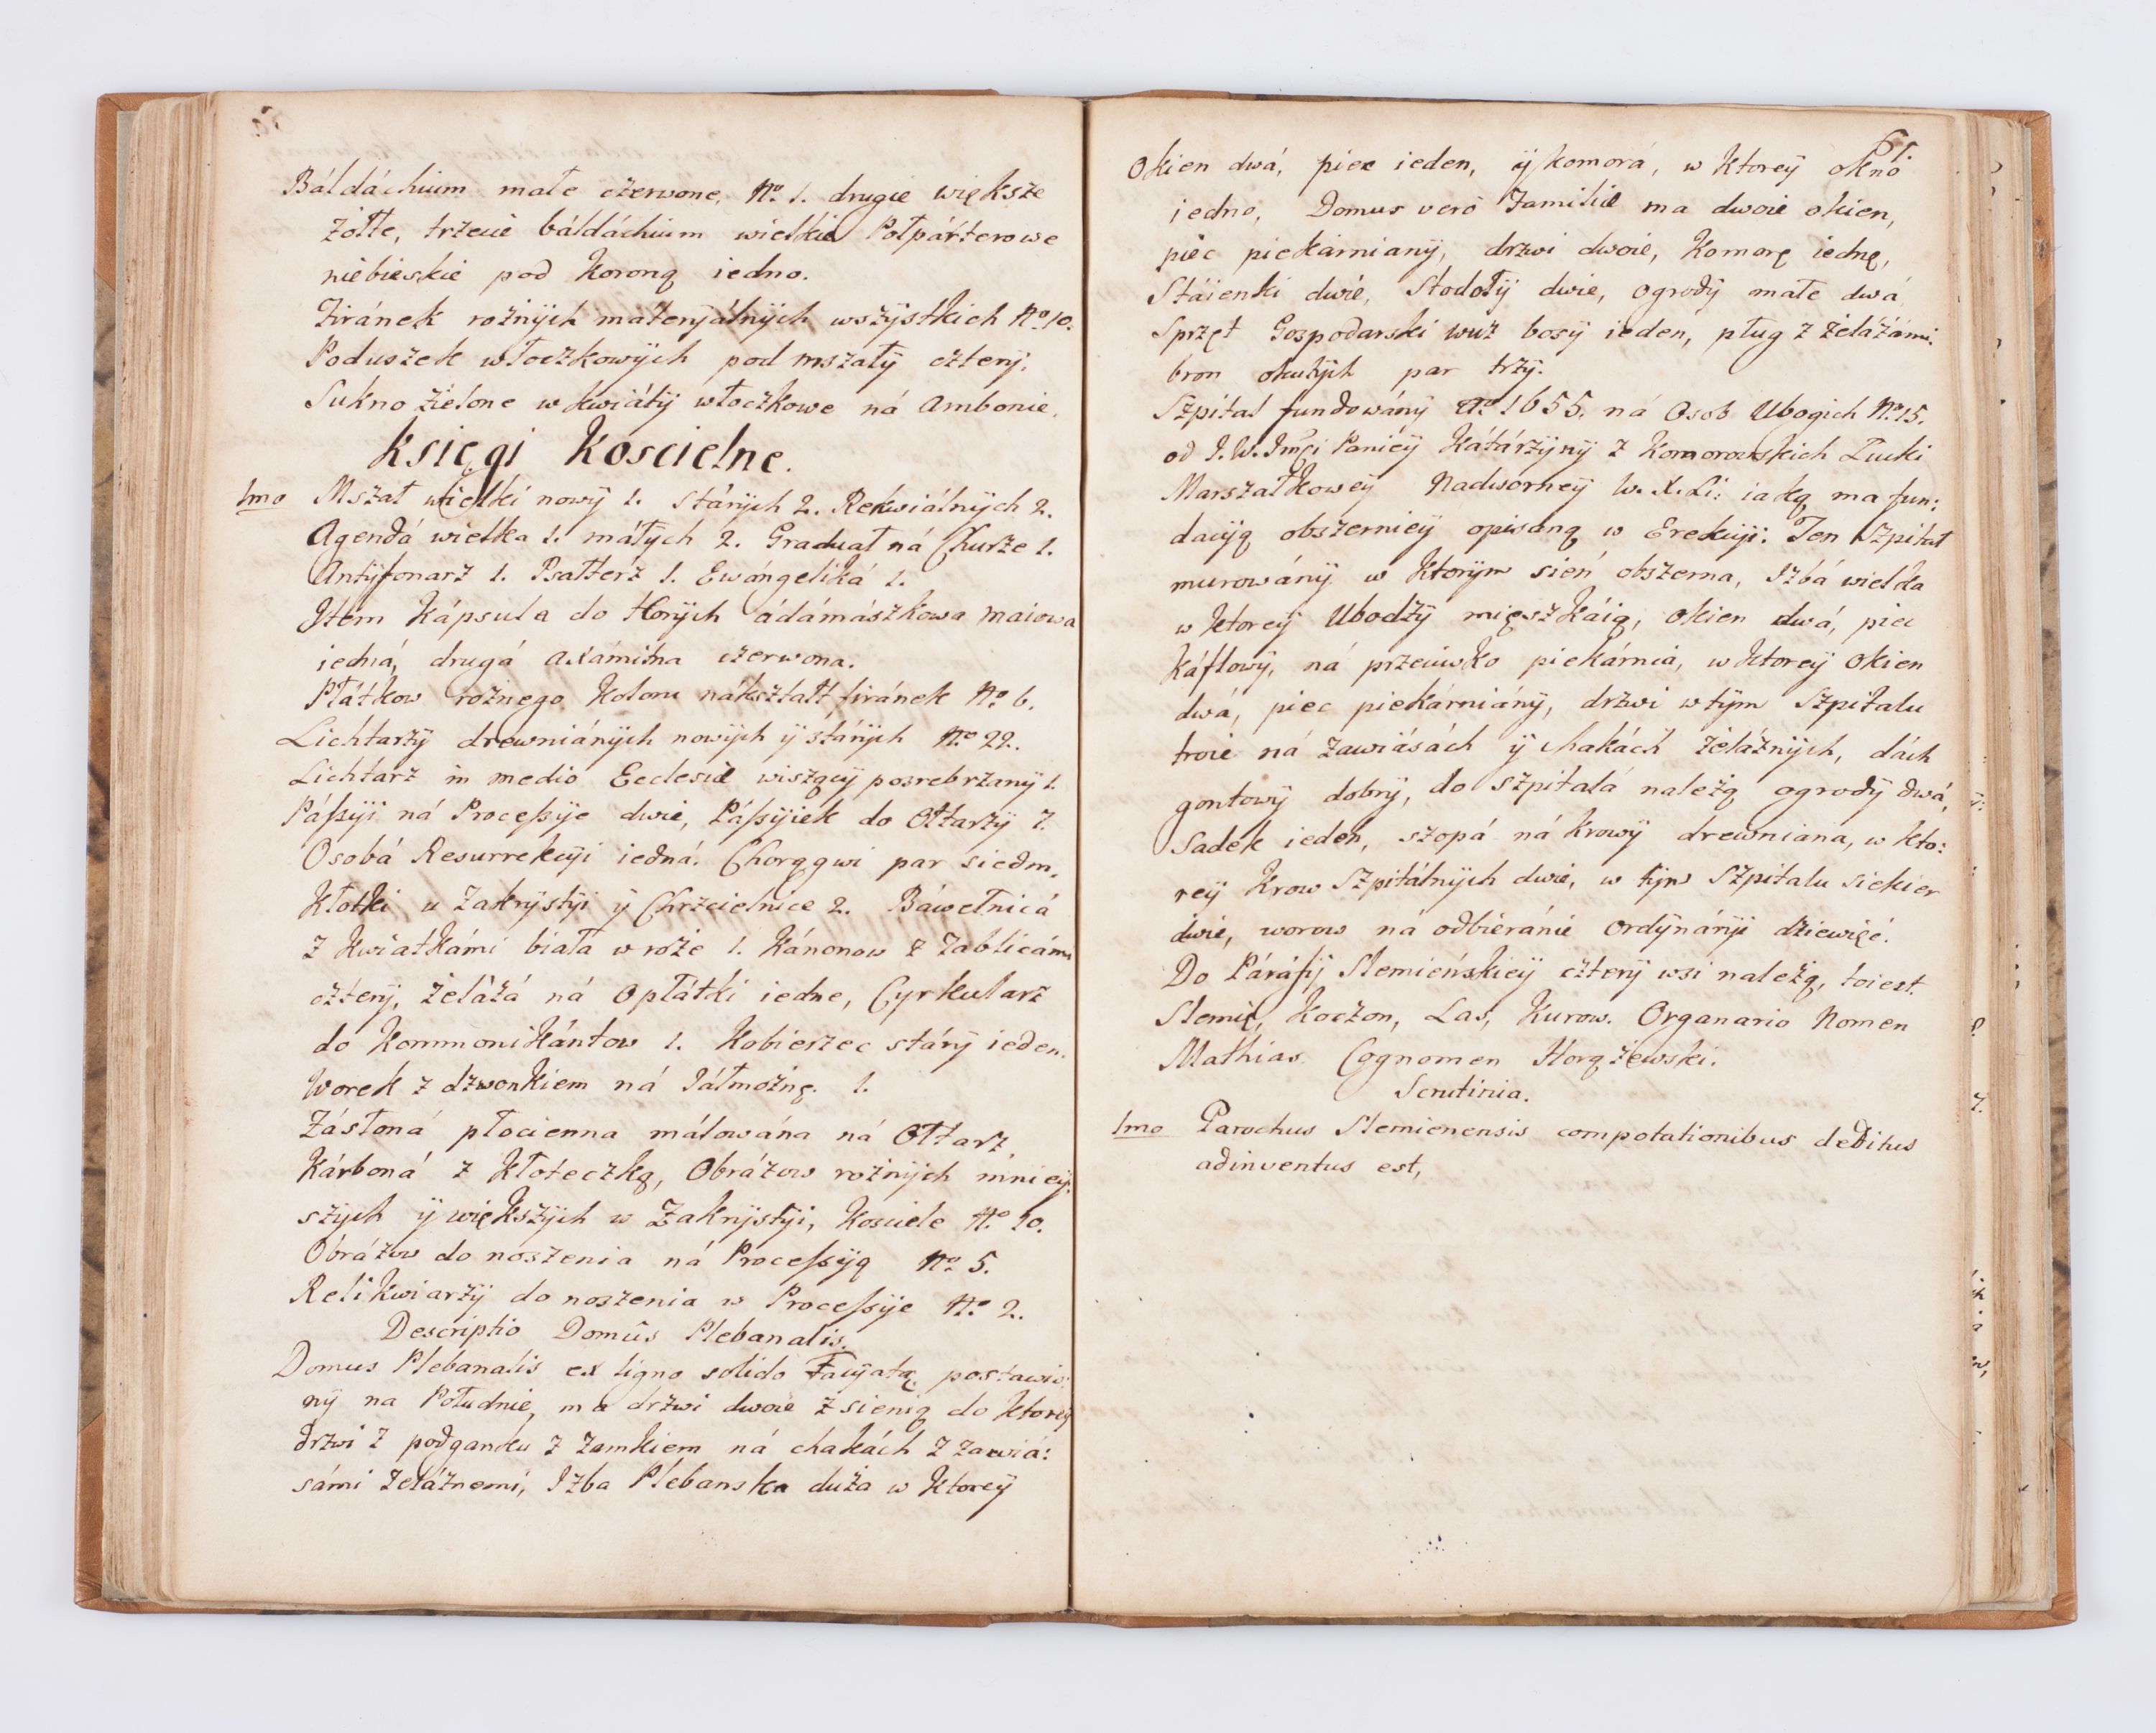 Báldáchium małe czerwone, No. 1. drugie większe
żołte, trzecie báldáchium wielkie Połpárterowe
niebieskie pod Koroną iedno.
Firánek rożnÿch máterÿálnÿch wszÿstkich No. 10.
Poduszek włoczkowÿch pod mszałÿ czterÿ.
Sukno zielone w kwiátÿ włoczkowe ná Ambonie.
Księgi Koscielne.
1mo Mszał wielki nowÿ 1. stárÿch 2. Rekwiálnÿch 2.
Agendá wielka 1. máłych 2. Graduał ná Churze 1.
Antÿfonarz 1. Psałterz 1. Ewángeliká 1.
Item Kápsula do Horÿch ádámászkowa maiowa
iedná, drugá axámitna czerwona.
Płátkow rożnego Koloru nákształt firánek No. 6.
Lichtarzÿ drewniánÿch nowÿch ÿ stárÿch No. 22.
Lichtarz in medio Ecclesiæ wiszącÿ posrebrzanÿ 1.
Páſsÿi ná Proceſsÿe dwie, Páſsÿiek do Ołtarzÿ 7.
Osobá Resurrekcÿi iedná. Chorągwi par siedm.
Kłotki u Zakrÿstÿi ÿ Chrzcielnice 2. Báwełnicá
z Kwiatkámi biała w roże 1. Kánonow z Tablicámi
czterÿ, żelázá ná Opłátki iedne, Cyrkularz
do Kommonikántow 1. Kobierzec stárÿ ieden.
Worek z dzwonkiem ná Jáłmożnę. 1.
Zásłoná płocienna málowána ná Ołtarz
Kárboná z Kłoteczką, Obrázow rożnÿch mnieÿ:
szÿch ÿ większÿch w Zakrÿstÿi, Kosciele No. 10.
Obrázow do noszenia ná Proceſsÿą No. 5.
Relikwiarzÿ do noszenia w Proceſsÿe No. 2.
Descriptio Domûs Plebanalis.
Domus Plebanalis ex ligno solido Facÿatą postawio:
nÿ na Południe, ma drzwi dwoie z sienią do Ktoreÿ
drzwi z podganku z zamkiem ná chakách z zawiá:
sámi żeláznemi, Izba Plebanska duża w Ktoreÿ
51.
Okien dwá, piec ieden, ÿ komorá, w Ktoreÿ okno
iedno, Domus verò Familiæ ma dwoie okien,
piec piekárnianÿ, drzwi dwoie, Komorę iednę,
Stáienki dwie, Stodołÿ dwie, ogrodÿ małe dwá
Sprzęt Gospodarski wuz bosÿ ieden, pług z żelázámi.
bron okutÿch par trzÿ.
Szpital fundowánÿ Ao. 1655. ná Osob Ubogich No. 15.
od J. W. Jmći Panieÿ Kátárzÿnÿ z Komorowskich Lucki
Marszałkoweÿ Nadworneÿ W. X. Li: iaką ma fun:
dacÿą obszernieÿ opisaną w Erekcÿi. Ten Szpital
murowánÿ w Ktorÿm sień obszerna, Izbá wielka
w Ktoreÿ Ubodzÿ mięszkáią, okien dwá, piec
káflowÿ, ná przeciwko piekárnia, w Ktoreÿ Okien
dwá, piec piekárniánÿ, drzwi w tÿm Szpitalu
troie ná zawiásách ÿ chakách żeláznÿch, dách
gontowÿ dobrÿ, do szpitalá należą ogrodÿ dwá,
Sadek ieden, szopá ná Krowÿ drewniana, w Kto:
reÿ Krow Szpitálnÿch dwie, w tÿm Szpitalu siekier
dwie, worow ná odbieránie Ordÿnárÿi dziewięć.
Do Páráfij Slemieńskieÿ czterÿ wsi należą, toiest.
Slemię, Koczon, Las, Kurow. Organario Nomen
Mathias Cognomen Horążewski.
Scrutinia.
1mo Parochus Slemienensis compotationibus deditus
adinventus est,